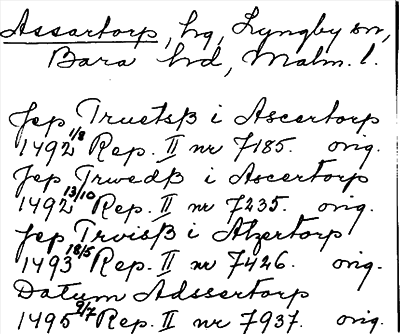 Assartorp, hg, Lyngby sn,
Bara hd, Malm. l.
Jep Truetsß i Ascertorp
1492 1/8 Rep. II nr 7185. orig.
Jep Trwedß i Ascertorp
1492 13/10 Rep. II nr 7235. orig.
Jep Trvisß i Atzertorp
1493 18/5 Rep. II nr 7426. orig.
Datum Adssertorp
1495 9/7 Rep. II nr 7937. orig.